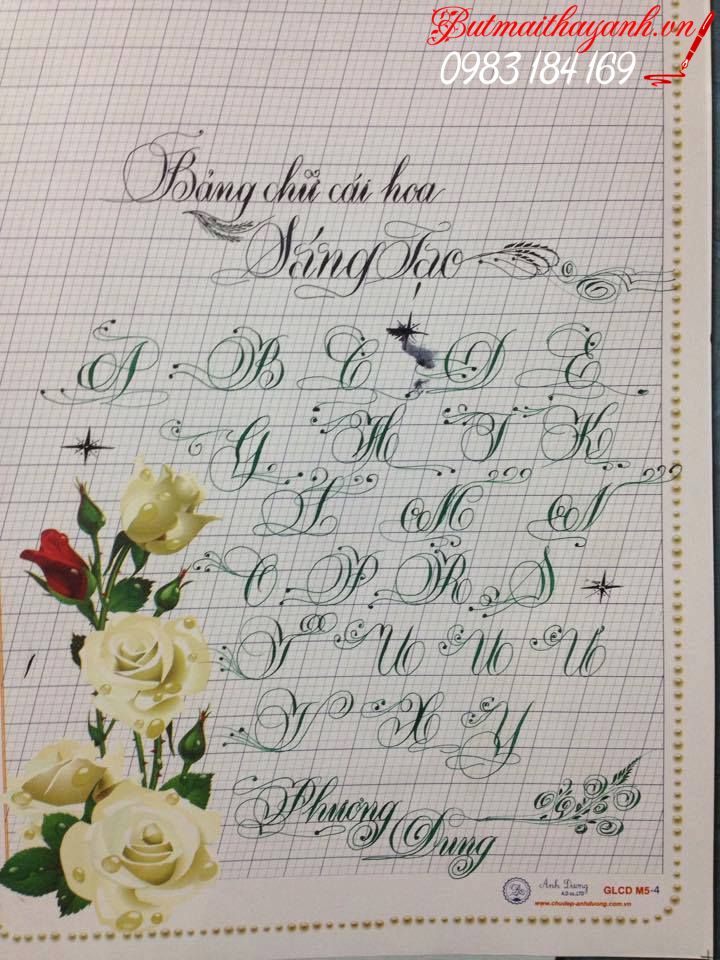 Butmaithayanh.vn
0983 184 169
Bảng chữ cái hoa
Sáng Tạo
A B C D E
G H I K
L M N
O P R S
T U U U
V X Y
Phương
Dung
Ánh Dương
GLCD M5-4
www.chudep-anhduong.com.vn